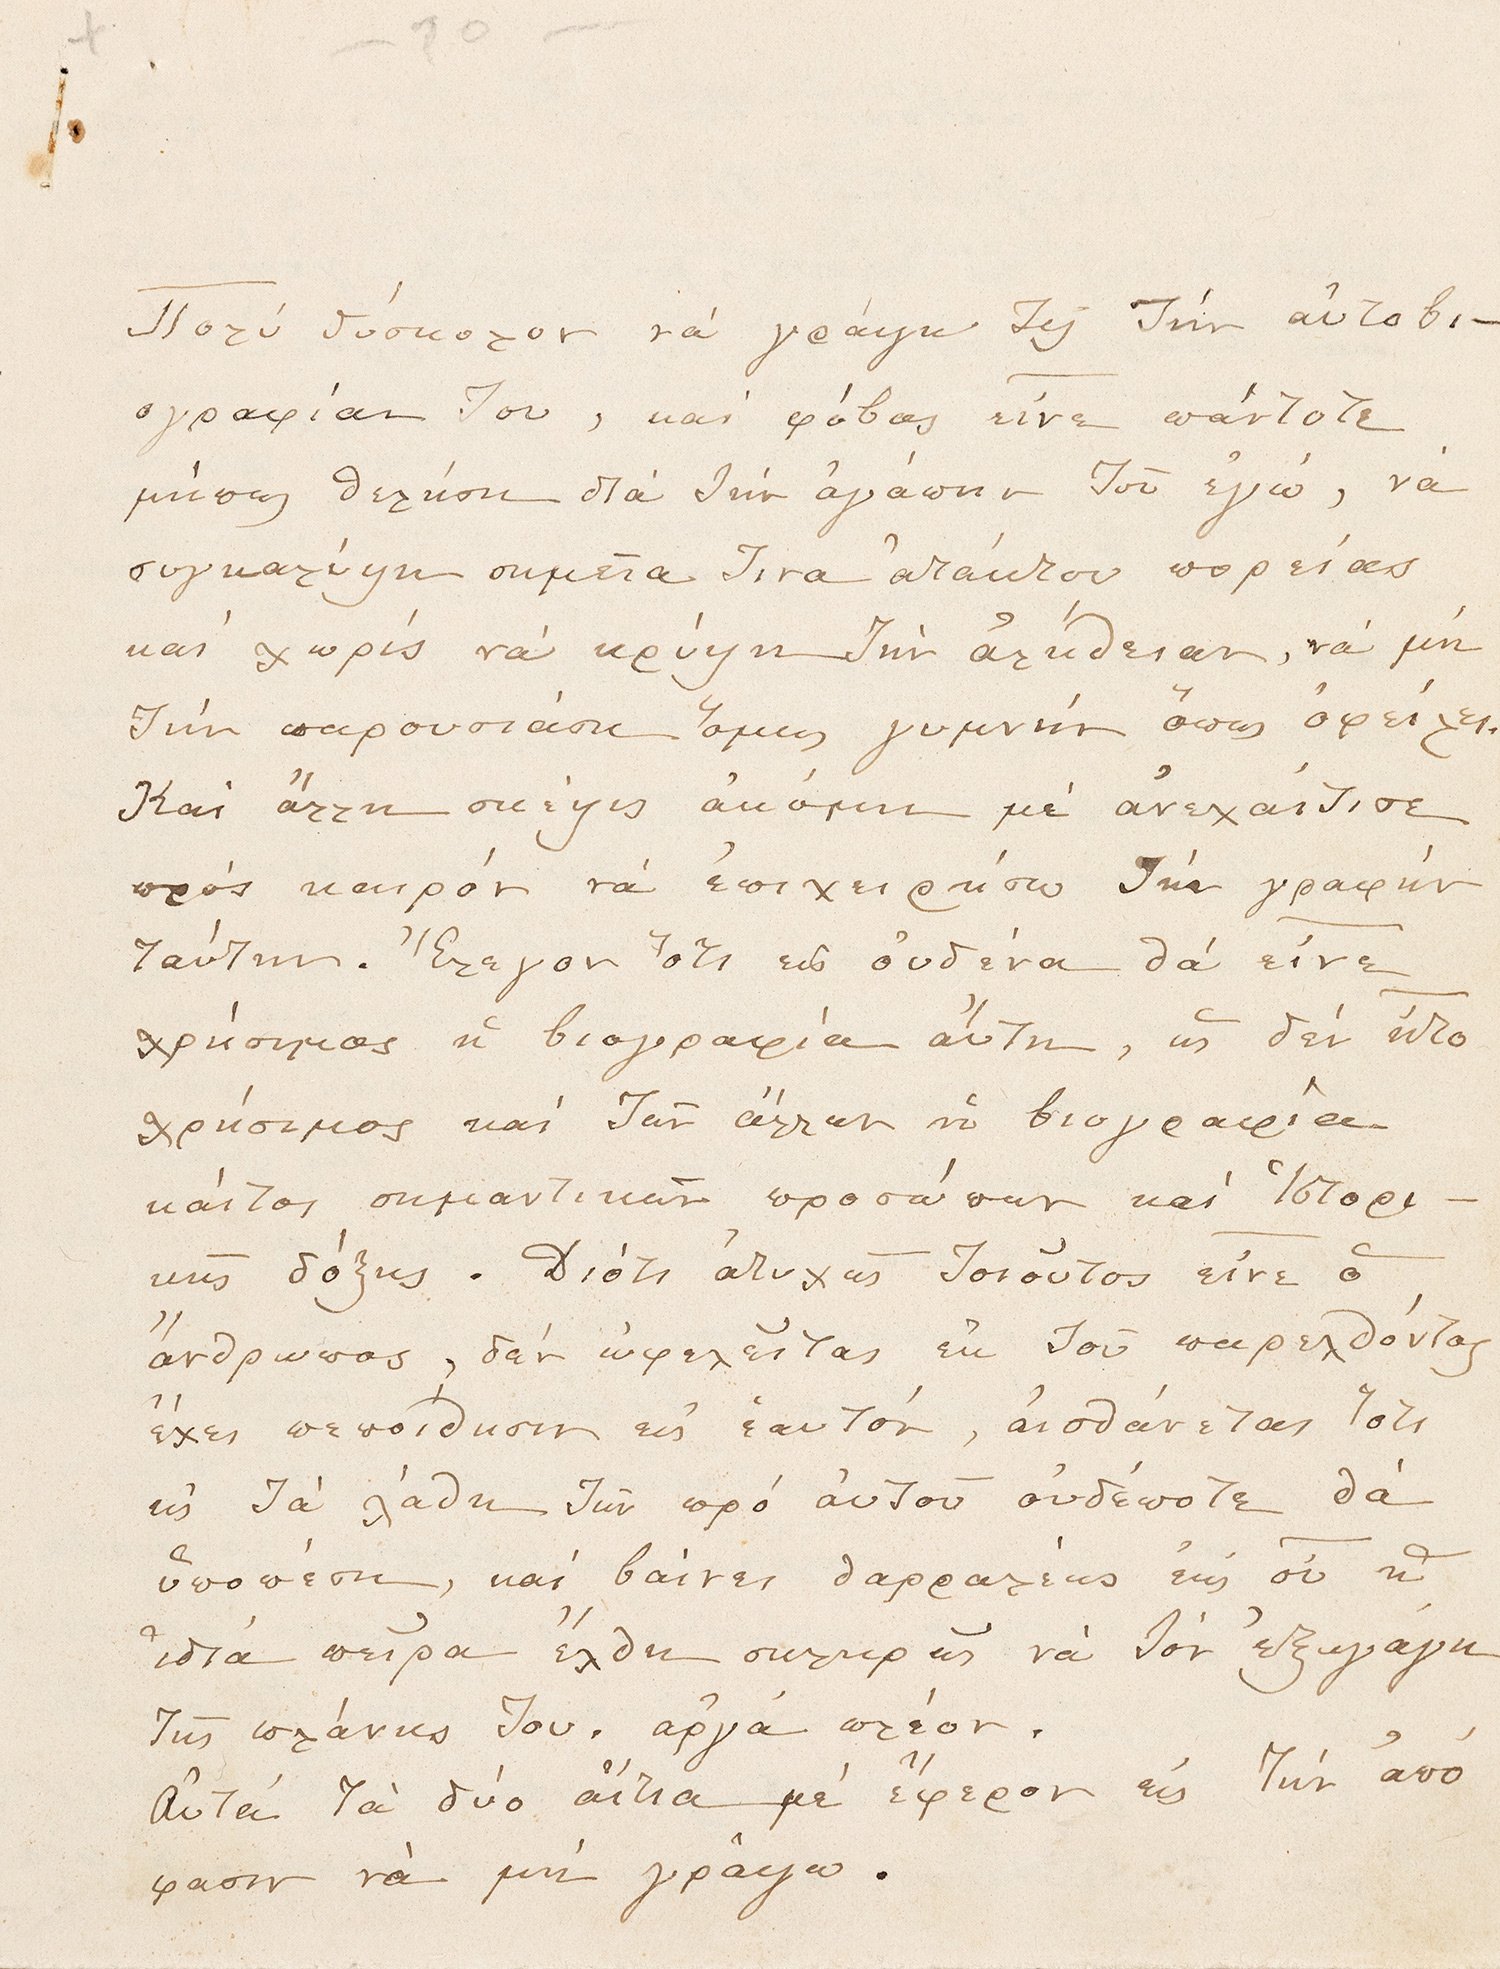 — 70 —
Πολύ δύσκολον νά γράψη τις τήν αὐτοβι-
ογραφίαν του, καί φόβος εἶνε πάντοτε
μήπως θελήση διά τήν ἀγάπην τοῦ ἐγώ, νά
συγκαλύψη σημεῖα τινα ἀτάκτου πορείας
καί χωρίς νά κρύψη τήν ἀλήθειαν, νά μή
τήν παρουσιάση ὅμως γυμνήν ὅπως ὀφείλει.
Καί ἄλλη σκέψις ἀκόμη μέ ἀνεχαίτισε
πρός καιρόν νά ἐπιχειρήσω τήν γραφήν
ταύτην. Ἔλεγον ὅτι εἰς οὐδένα θά εἶνε
χρήσιμος ἡ βιογραφία αὕτη, ὡς δέν ἦτο
χρήσιμος καί τῶν ἄλλων ἡ βιογραφία
καίτοι σημαντικῶν προσώπων καί ἱστορι-
κῆς δόξης. Διότι ἀτυχῶς τοιοῦτος εἶνε ὁ
ἄνθρωπος, δέν ὠφελεῖται ἐκ τοῦ παρελθόντος
ἔχει πεποίθησιν εἰς ἑαυτόν, αἰσθάνεται ὅτι
εἰς τά λάθη τῶν πρό αὐτοῦ οὐδέποτε θά
ὑποπέση, καί βαίνει θαρραλέως ἕως οὗ ἡ
ἰδία πεῖρα ἔλθη σκληρῶς νά τόν ἐξαγάγη
τῆς πλάνης του. ἀργά πλέον.
Αὐτά τά δύο αἴτια μέ ἔφερον εἰς τήν ἀπό
φασιν νά μή γράψω.